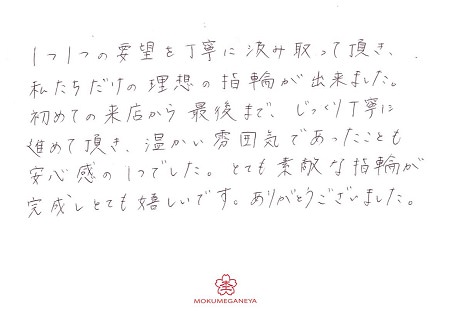 1つ1つの要望を丁寧に汲み取って頂き、
私たちだけの理想の指輪が出来ました。
初めての来店から最後まで、じっくり丁寧に
進めて頂き、温かい雰囲気であったことも
安心感の1つでした。とても素敵な指輪が
完成しとても嬉しいです。ありがとうございました。
MOKUMEGANEYA